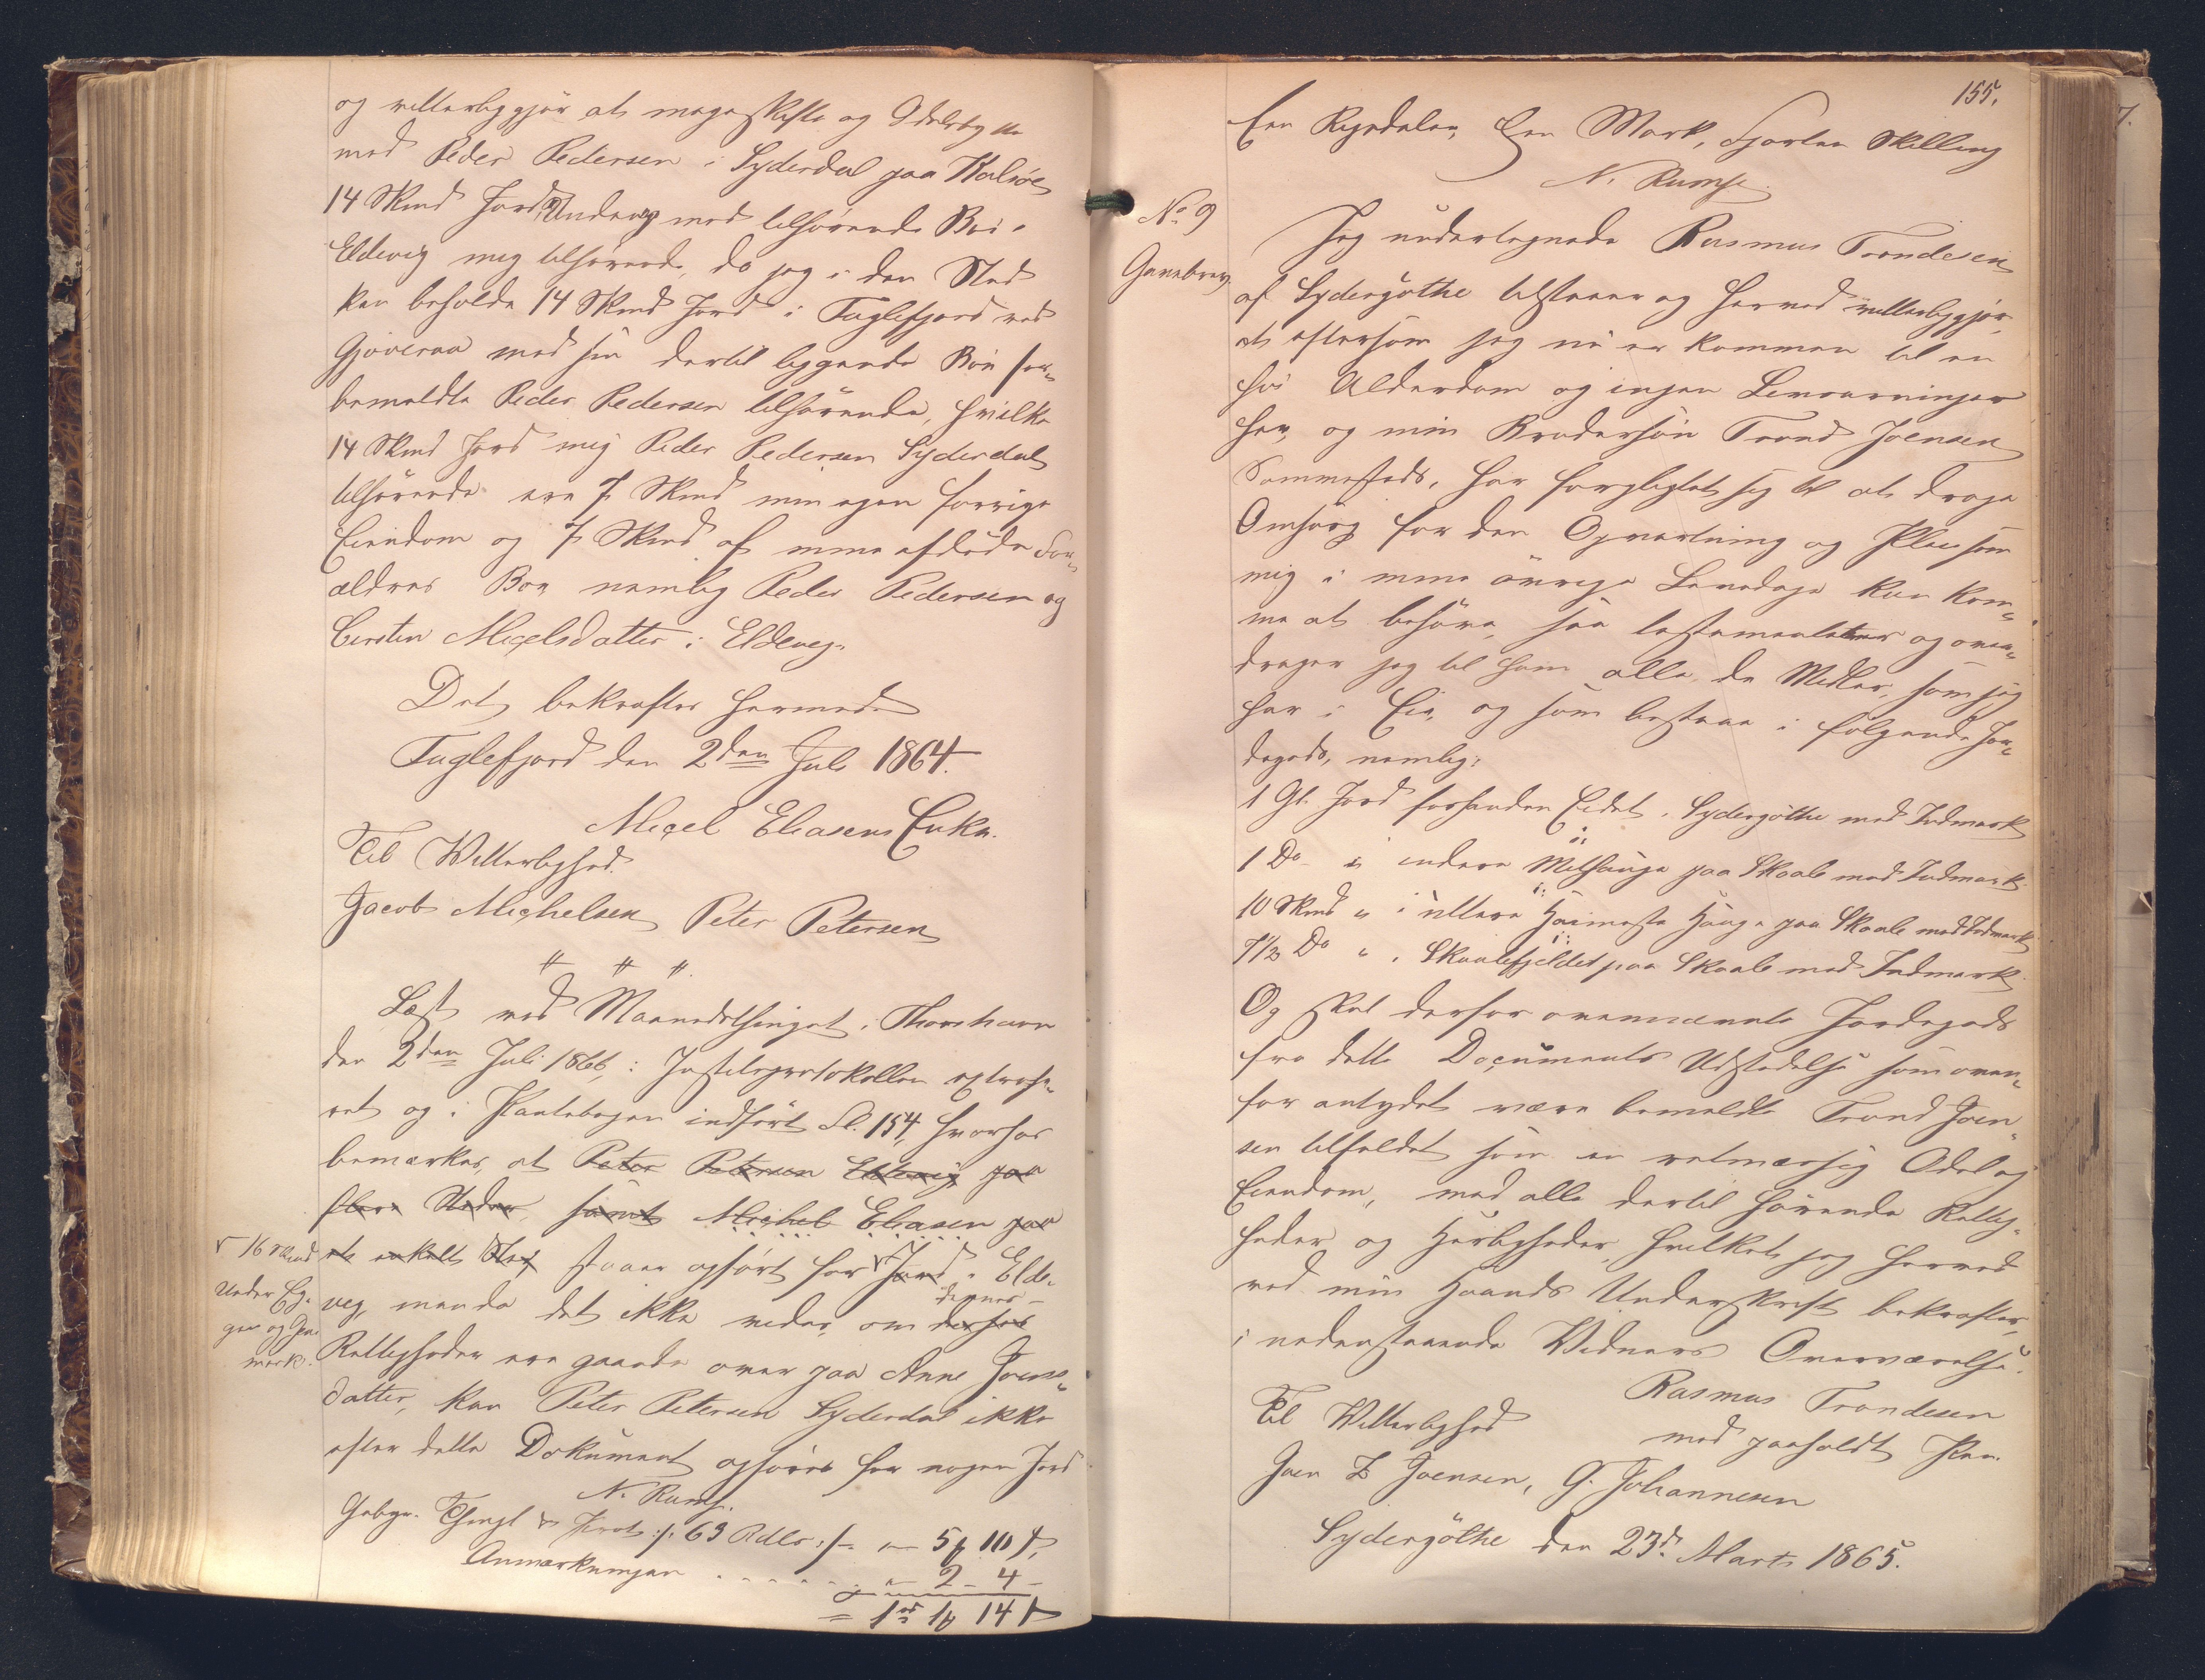 og vitterliggjør at mageskifte og Odelsbytte
med Peder Pedersen i Syderdal paa Kalsøe
14 Skind Jord Undereyg med tilhørende Bøe i
Eldevig mig tilhørende, da jeg i den Sted
kan beholde 14 Skind Jord i Fuglefjord ved
Gjøveraa med sin dertil liggende Bøe for-
bemeldte Peder Pedersen tilhørende, hvilke
14 Skind Jord mig Peder Pedersen Syderdal
tilhørende ere 7 Skind min egen forrige
Eiendom og 7 Skind af mine afdøde For-
ældres Boe nemlig Peder Pedersen og
Cirstin Miçelsdatter i Eldevig.
Det bekræftes hermed
Fuglefjord den 2den Juli 1864.
Miçel Eliasens Enke.
Til Vitterlighed.
Jacob Michelsen Peter Petersen
# # #
Læst ved Maanedsthinget i Thorshavn
den 2den Juli 1866, i Justitsprotokollen extrahe-
ret og i Pantebogen indført Fol. 154, hvorhos
bemærkes, at Peter Petersen Eldevig paa
flere Steder, samt Michel Eliasen paa
et enkelt Sted staaer opført for √ Jord i Elde-
√ 16 Skind
Under Ey-
gen og Ind-
mark.
vig, men da det ikke vides, om dennes
Rettigheder ere gaaede over paa Anne Joens-
datter, kan Peter Petersen Syderdal ikke
efter dette Dokument opføres for nogen Jord.
N. Rump.
Gebyr. Thingl & Prot. :/: 63 Rdlr. :/: 5 ₰ 10 ß,
Anmærkningen . . . . . . 2 - 4 -
= 1 rd 1 ₰ 14 ß
155.
Een Rigsdaler, Een Mark, Fjorten Skilling
N. Rump.
No 9
Gavebrev.
Jeg undertegnede Rasmus Trondesen
af Sydergøthe tilstaaer og herved vitterliggjør,
at eftersom jeg nu er kommen til en
høi Alderdom og ingen Livsarvinger
har, og min Brodersøn Trond Joensen
Sammesteds, har forpligtet sig til at drage
Omsorg for den Opvartning og Pleie som
mig i mine øvrige Levedage kan kom-
me at behøve, saa testamenterer og over-
drager jeg til ham alle de Midler, som jeg
har i Eie, og som bestaae i følgende Jor-
degods, nemlig:
1 Gl. Jord forhanden Eidet i Sydergøthe med Indmark
1 Do i indere Midhauge paa Skaale med Indmark.
10 Skind " i uttere Heimasta Hauge paa Skaale med Indmark
7 1/2 Do " i Skaalefjeldet paa Skaale med Indmark.
Og skal derfor ovennævnte Jordegods
fra dette Documents Udstedelse som oven-
for antydet være bemeldte Trond Joen-
sen tilfaldet som en retmæssig Odel og
Eiendom, med alle dertil hørende Rettig-
heder og Herligheder, hvilket jeg herved
ved min Haands Underskrift bekræfter,
i nedenstaaende Vidners Overværelse.
Rasmus Trondesen
med paaholdt Pen.
Til Vitterlighed
Joen Z Joensen, G. Johannesen
Sydergøthe den 23d. Marts 1865.